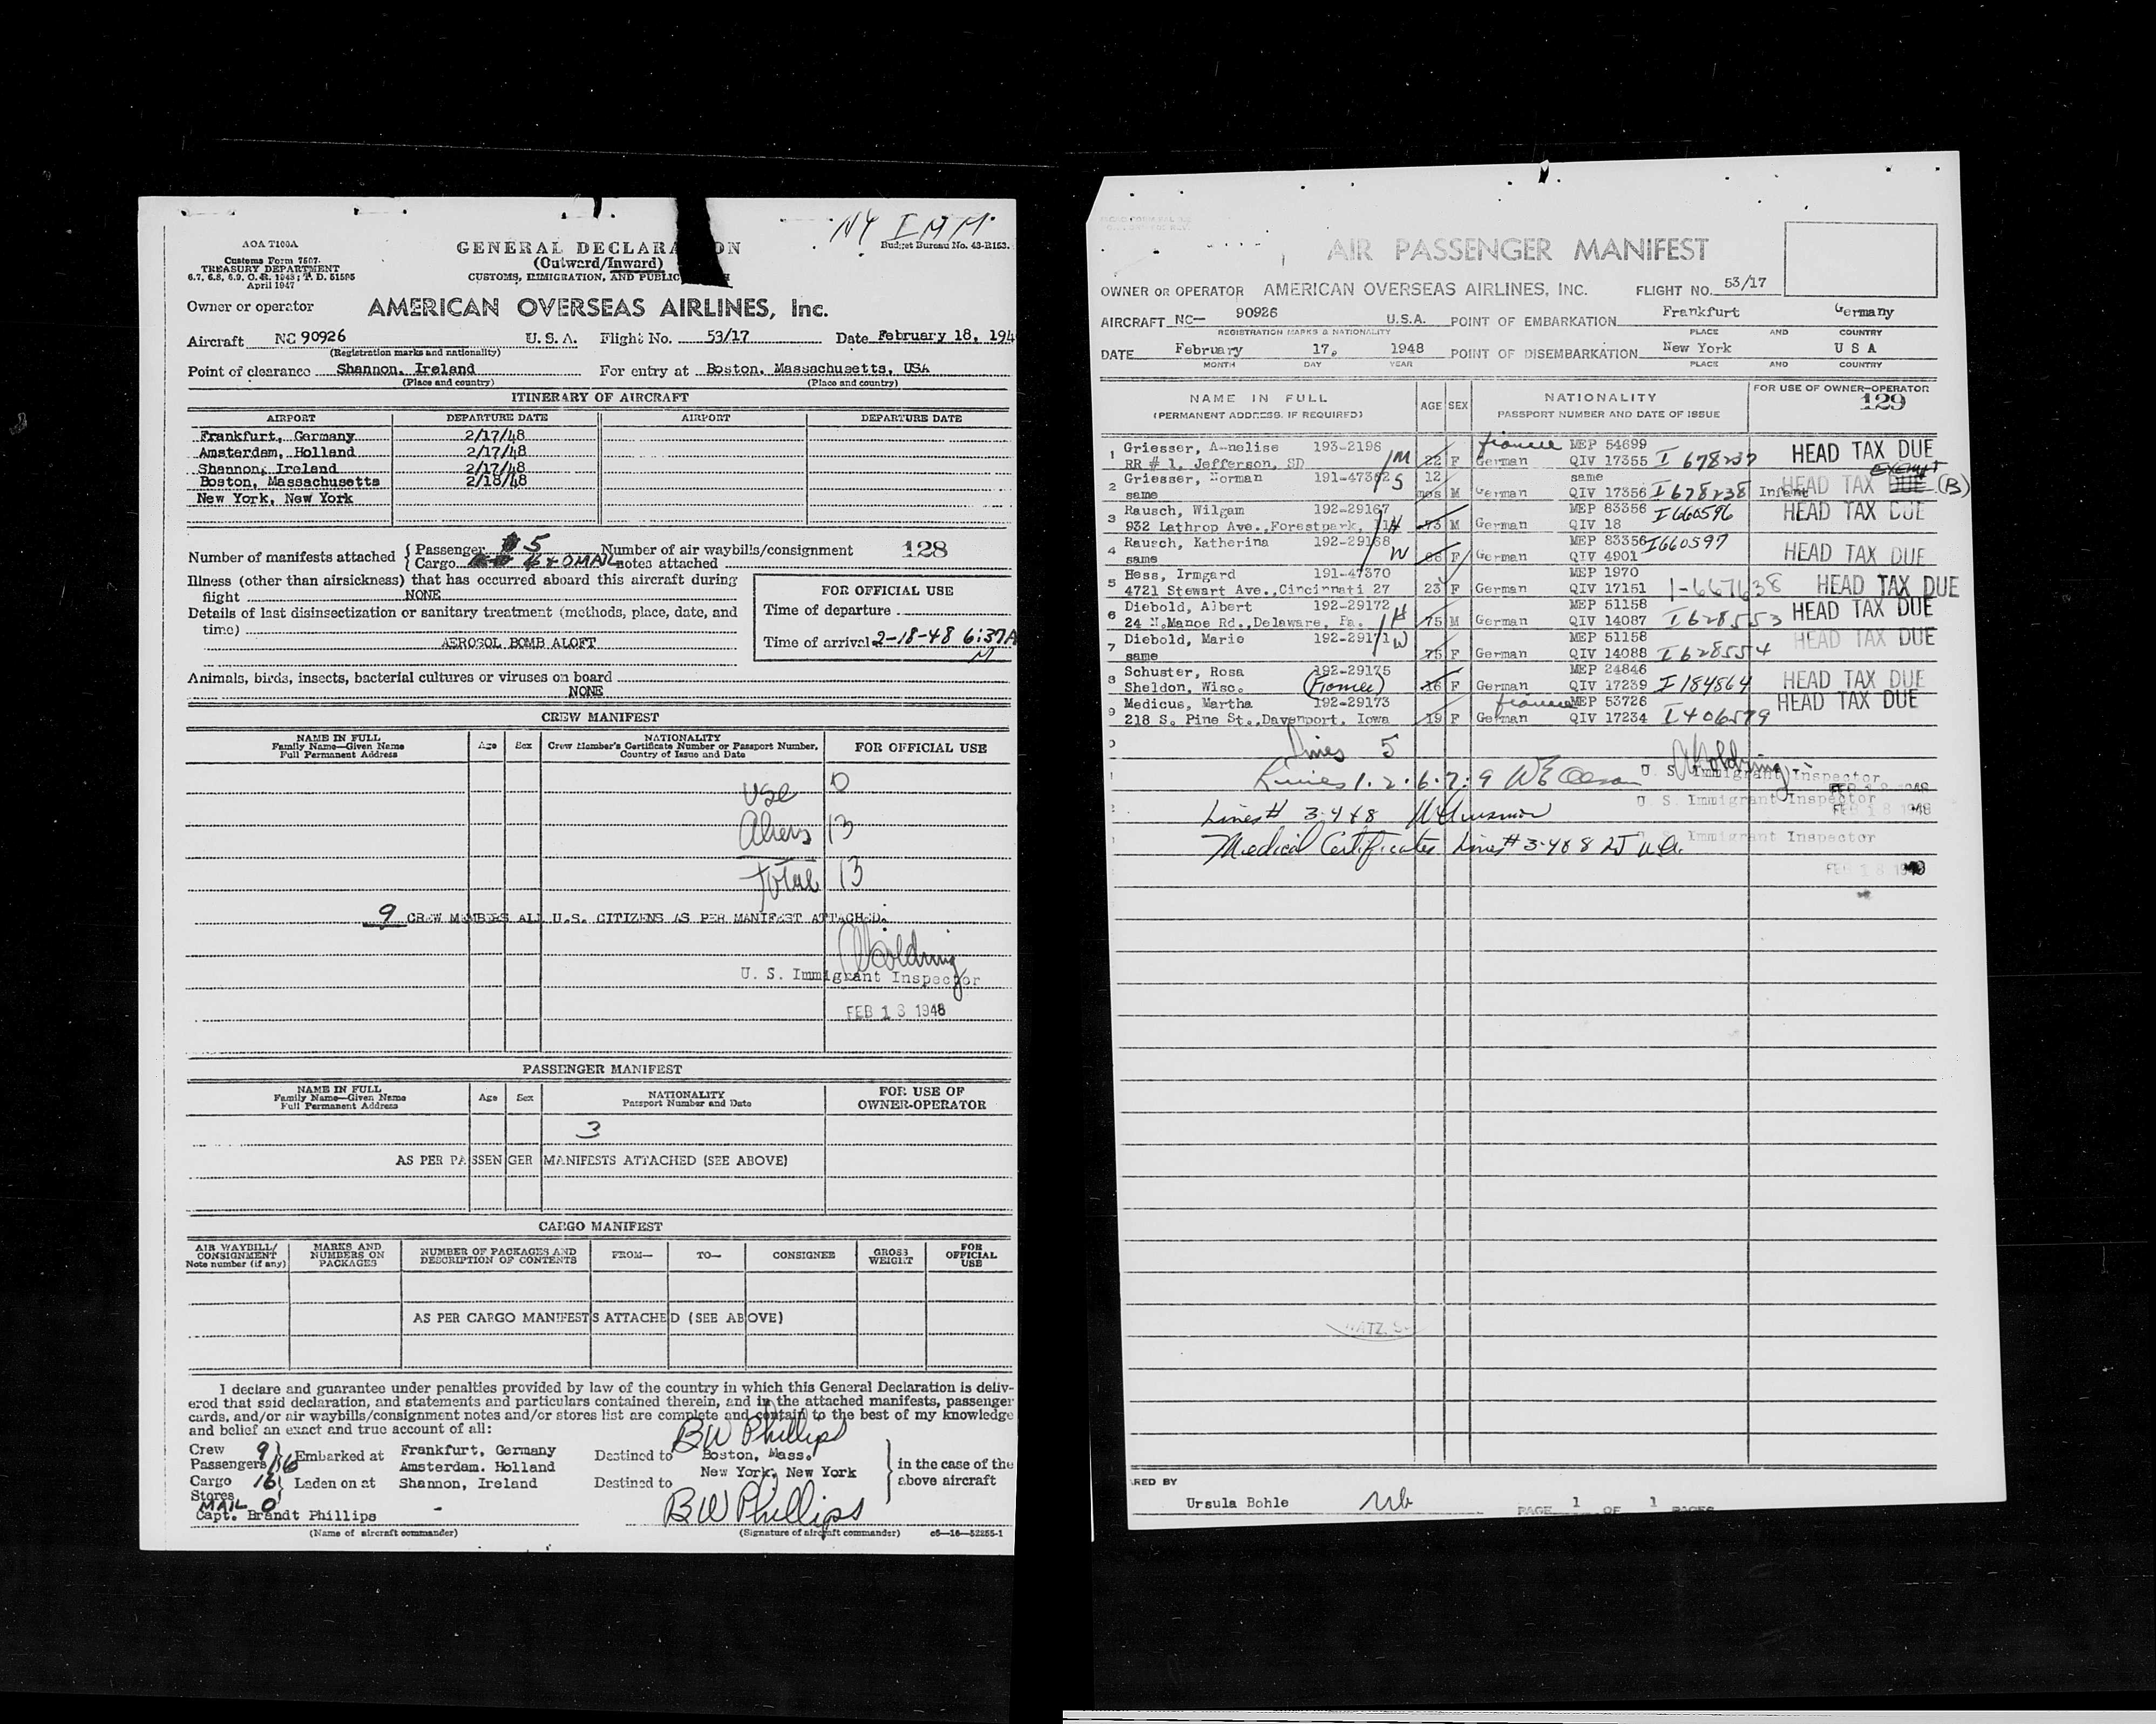 NY IMM
AOA T100A
Customs Form 7507
TREASURY DEPARTMENT
6.7, 6.8, 6.9, C. R. 1943; T. D. 51595
April 1947
GENERAL DECLARA ON
(Outward/Inward)
CUSTOMS, IMMIGRATION, AND PUBLIC H
Budget Bureau No. 43-R153.
Owner or operator AMERICAN OVERSEAS AIRLINES, Inc.
Aircraft NC 90926 U. S. A. Flight No. 53/17 Date February 18, 194
(Registration marks and nationality)
Point of clearance Shannon, Ireland For entry at Boston, Massachusetts, USA
(Place and country) (Place and country)
ITINERARY OF AIRCRAFT
AIRPORT DEPARTURE DATE AIRPORT DEPARTURE DATE
Frankfurt, Germany 2/17/48
Amsterdam, Holland 2/17/48
Shannon, Ireland 2/17/48
Boston, Massachusetts 2/18/48
New York, New York
Number of manifests attached { Passenger 5 Number of air waybills/consignment 128
Cargo MAIL notes attached
Illness (other than airsickness) that has occurred aboard this aircraft during
flight NONE
Details of last disinsectization or sanitary treatment (methods, place, date, and
time)
AEROSOL BOMB ALOFT
FOR OFFICIAL USE
Time of departure
Time of arrival 2-18-48 6:37A
M
Animals, birds, insects, bacterial cultures or viruses on board
NONE
CREW MANIFEST
NAME IN FULL
Family Name—Given Name
Full Permanent Address
Age Sex
NATIONALITY
Crew Member's Certificate Number or Passport Number,
Country of Issue and Date
FOR OFFICIAL USE
USC 0
Aliens 13
Total 13
9 CREW MEMBERS ALL U.S. CITIZENS AS PER MANIFEST ATTACHED.
U. S. Immigrant Inspector
FEB 18 1948
PASSENGER MANIFEST
NAME IN FULL
Family Name—Given Name
Full Permanent Address
Age Sex
NATIONALITY
Passport Number and Date
FOR USE OF
OWNER-OPERATOR
3
AS PER PASSENGER MANIFESTS ATTACHED (SEE ABOVE)
CARGO MANIFEST
AIR WAYBILL/
CONSIGNMENT
Note number (if any)
MARKS AND
NUMBERS ON
PACKAGES
NUMBER OF PACKAGES AND
DESCRIPTION OF CONTENTS
FROM— TO— CONSIGNEE
GROSS
WEIGHT
FOR
OFFICIAL
USE
AS PER CARGO MANIFESTS ATTACHED (SEE ABOVE)
I declare and guarantee under penalties provided by law of the country in which this General Declaration is deliv-
ered that said declaration, and statements and particulars contained therein, and in the attached manifests, passenger
cards, and/or air waybills/consignment notes and/or stores list are complete and contain to the best of my knowledge
and belief an exact and true account of all:
BW Phillips
Crew 9 Embarked at Frankfurt, Germany Destined to Boston, Mass.
Passengers 16 Amsterdam. Holland New York, New York in the case of the
Cargo 16 Laden on at Shannon, Ireland Destined to above aircraft
Stores
MAIL 0
Capt. Brandt Phillips BW Phillips
(Name of aircraft commander) (Signature of aircraft commander) c6—16—52255-1
AIR PASSENGER MANIFEST
OWNER OR OPERATOR AMERICAN OVERSEAS AIRLINES, INC. FLIGHT NO. 53/17
AIRCRAFT NC— 90926 U.S.A. POINT OF EMBARKATION Frankfurt Germany
REGISTRATION MARKS & NATIONALITY PLACE AND COUNTRY
DATE February 17, 1948 POINT OF DISEMBARKATION New York U S A
MONTH DAY YEAR PLACE AND COUNTRY
NAME IN FULL
(PERMANENT ADDRESS, IF REQUIRED)
AGE SEX
NATIONALITY
PASSPORT NUMBER AND DATE OF ISSUE
FOR USE OF OWNER-OPERATOR
129
1 Griesser, A-nelise 193-2196 fiancee MEP 54699 HEAD TAX DUE
RR # 1, Jefferson, SD M 22 F German QIV 17355 I 678237
2 Griesser, Norman 191-47362 S 12 same EXEMPT
same mos M German QIV 17356 I 678238 Infant HEAD TAX DUE (B)
3 Rausch, Wilgam 192-29167 MEP 83356 I 660596 HEAD TAX DUE
932 Lathrop Ave., Forestpark, Ill H 73 M German QIV 18
4 Rausch, Katherina 192-29168 MEP 83356 I660597
same W 66 F German QIV 4901 HEAD TAX DUE
5 Hess, Irmgard 191-47370 MEP 1970
4721 Stewart Ave., Cincinnati 27 23 F German QIV 17151 I-667638 HEAD TAX DUE
6 Diebold, Albert 192-29172 MEP 51158 HEAD TAX DUE
24 N.Manoe Rd., Delaware, Pa. H 75 M German QIV 14087 I 628553
7 Diebold, Marie 192-29171 W MEP 51158 HEAD TAX DUE
same 75 F German QIV 14088 I 628554
8 Schuster, Rosa 192-29175 MEP 24846 HEAD TAX DUE
Sheldon, Wisc. (Fiancee) 26 F German QIV 17239 I 184864
9 Medicus, Martha 192-29173 fiancee MEP 53726 HEAD TAX DUE
218 S. Pine St., Davenport, Iowa 19 F German QIV 17234 I 406579
Lines 5
U. S. Immigrant Inspector
Lines 1. 2. 6. 7. 9 WE Olson
FEB 18 1948
U. S. Immigrant Inspector
FEB 18 1948
Lines # 3-4 & 8
U. S. Immigrant Inspector
Medical Certificates Lines # 3-4 & 8
FEB 18 19
RED BY
Ursula Bohle Ub PAGE 1 OF 1 PAGES